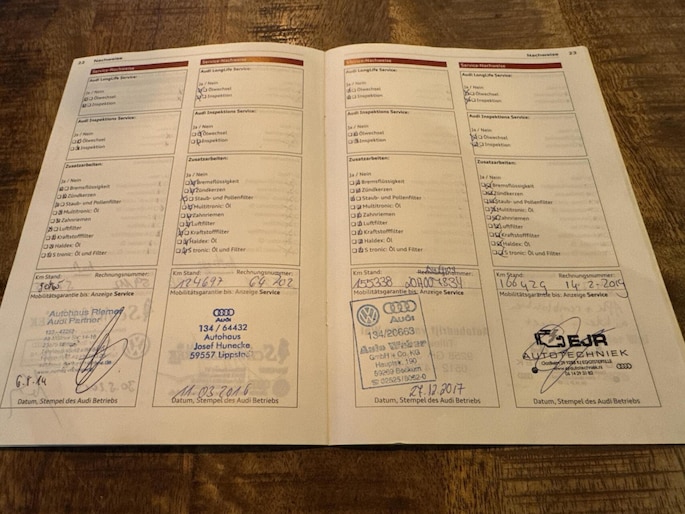 22 Nachweise
Service-Nachweise
Audi LongLife Service:
Ja / Nein
Ölwechsel
Inspektion
Audi Inspektions Service:
Ja / Nein
Ölwechsel
Inspektion
Zusatzarbeiten:
Ja / Nein
Bremsflüssigkeit
Zündkerzen
Staub- und Pollenfilter
Multitronic: Öl
Zahnriemen
Luftfilter
Kraftstofffilter
Haldex: Öl
S tronic: Öl und Filter
Km Stand: Rechnungsnummer:
Mobilitätsgarantie bis: Anzeige Service
Autohaus Riemer
Audi Partner
6.5.14
Datum, Stempel des Audi Betriebs
Service-Nachweise
Audi LongLife Service:
Ja / Nein
Ölwechsel
Inspektion
Audi Inspektions Service:
Ja / Nein
Ölwechsel
Inspektion
Zusatzarbeiten:
Ja / Nein
Bremsflüssigkeit
Zündkerzen
Staub- und Pollenfilter
Multitronic: Öl
Zahnriemen
Luftfilter
Kraftstofffilter
Haldex: Öl
S tronic: Öl und Filter
Km Stand: Rechnungsnummer:
134697
Mobilitätsgarantie bis: Anzeige Service
Audi
134 / 64432
Autohaus
Josef Hunecke
59557 Lippstadt
11-03-2016
Datum, Stempel des Audi Betriebs
Nachweise 23
Service-Nachweise
Audi LongLife Service:
Ja / Nein
Ölwechsel
Inspektion
Audi Inspektions Service:
Ja / Nein
Ölwechsel
Inspektion
Zusatzarbeiten:
Ja / Nein
Bremsflüssigkeit
Zündkerzen
Staub- und Pollenfilter
Multitronic: Öl
Zahnriemen
Luftfilter
Kraftstofffilter
Haldex: Öl
S tronic: Öl und Filter
Km Stand: Rechnungsnummer:
155338
Mobilitätsgarantie bis: Anzeige Service
Audi
134/20663
Auto Weber
GmbH + Co. KG
Hauptstr. 190
59269 Beckum
27.12.2017
Datum, Stempel des Audi Betriebs
Service-Nachweise
Audi LongLife Service:
Ja / Nein
Ölwechsel
Inspektion
Audi Inspektions Service:
Ja / Nein
Ölwechsel
Inspektion
Zusatzarbeiten:
Ja / Nein
Bremsflüssigkeit
Zündkerzen
Staub- und Pollenfilter
Multitronic: Öl
Zahnriemen
Luftfilter
Kraftstofffilter
Haldex: Öl
S tronic: Öl und Filter
Km Stand: Rechnungsnummer:
166429 14-2-2019
Mobilitätsgarantie bis: Anzeige Service
EJR
AUTOTECHNIEK
Datum, Stempel des Audi Betriebs